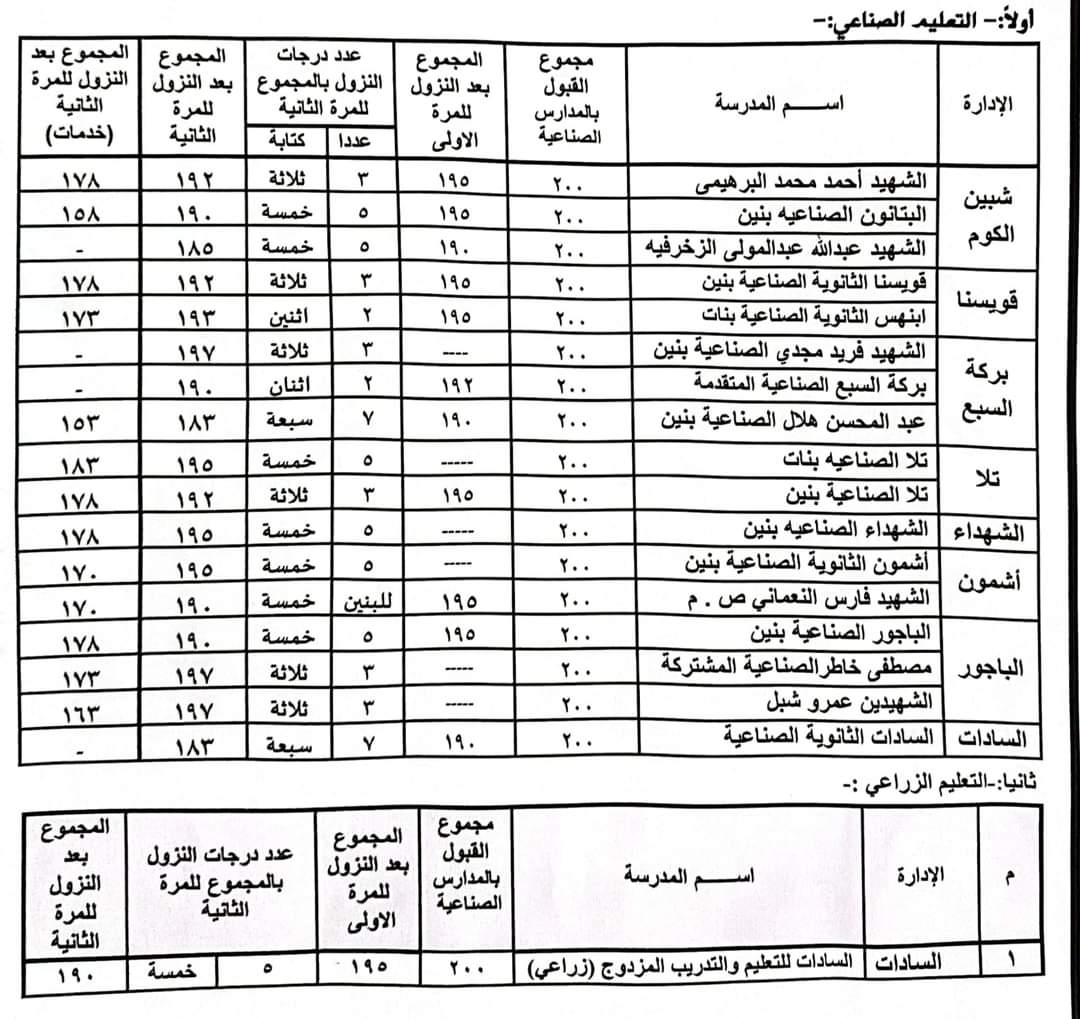 أولاً:- التعليم الصناعي:-
الإدارة | اســــم المدرسة | مجموع القبول بالمدارس الصناعية | المجموع بعد النزول للمرة الاولى | عدد درجات النزول بالمجموع للمرة الثانية | المجموع بعد النزول للمرة الثانية | المجموع بعد النزول للمرة الثانية (خدمات)
عددا | كتابة
شبين الكوم | الشهيد أحمد محمد البرهيمى | ٢٠٠ | ١٩٥ | ٣ | ثلاثة | ١٩٢ | ١٧٨
البتانون الصناعيه بنين | ٢٠٠ | ١٩٥ | ٥ | خمسة | ١٩٠ | ١٥٨
الشهيد عبدالله عبدالمولى الزخرفيه | ٢٠٠ | ١٩٠ | ٥ | خمسة | ١٨٥ | -
قويسنا | قويسنا الثانوية الصناعية بنين | ٢٠٠ | ١٩٥ | ٣ | ثلاثة | ١٩٢ | ١٧٨
ابنهس الثانوية الصناعية بنات | ٢٠٠ | ١٩٥ | ٢ | اثنين | ١٩٣ | ١٧٣
بركة السبع | الشهيد فريد مجدي الصناعية بنين | ٢٠٠ | ---- | ٣ | ثلاثة | ١٩٧ | -
بركة السبع الصناعية المتقدمة | ٢٠٠ | ١٩٢ | ٢ | اثنان | ١٩٠ | -
عبد المحسن هلال الصناعية بنين | ٢٠٠ | ١٩٠ | ٧ | سبعة | ١٨٣ | ١٥٣
تلا | تلا الصناعيه بنات | ٢٠٠ | ----- | ٥ | خمسة | ١٩٥ | ١٨٣
تلا الصناعية بنين | ٢٠٠ | ١٩٥ | ٣ | ثلاثة | ١٩٢ | ١٧٨
الشهداء | الشهداء الصناعيه بنين | ٢٠٠ | ----- | ٥ | خمسة | ١٩٥ | ١٧٨
أشمون | أشمون الثانوية الصناعية بنين | ٢٠٠ | ----- | ٥ | خمسة | ١٩٥ | ١٧٠
الشهيد فارس النعماني ص . م | ٢٠٠ | ١٩٥ | للبنين | خمسة | ١٩٠ | ١٧٠
الباجور | الباجور الصناعية بنين | ٢٠٠ | ١٩٥ | ٥ | خمسة | ١٩٠ | ١٧٨
مصطفى خاطر الصناعية المشتركة | ٢٠٠ | ----- | ٣ | ثلاثة | ١٩٧ | ١٧٣
الشهيدين عمرو شبل | ٢٠٠ | ----- | ٣ | ثلاثة | ١٩٧ | ١٦٣
السادات | السادات الثانوية الصناعية | ٢٠٠ | ١٩٠ | ٧ | سبعة | ١٨٣ | -
ثانيا:-التعليم الزراعي :-
م | الإدارة | اســــم المدرسة | مجموع القبول بالمدارس الصناعية | المجموع بعد النزول للمرة الاولى | عدد درجات النزول بالمجموع للمرة الثانية | المجموع بعد النزول للمرة الثانية
١ | السادات | السادات للتعليم والتدريب المزدوج (زراعي) | ٢٠٠ | ١٩٥ | ٥ | خمسة | ١٩٠